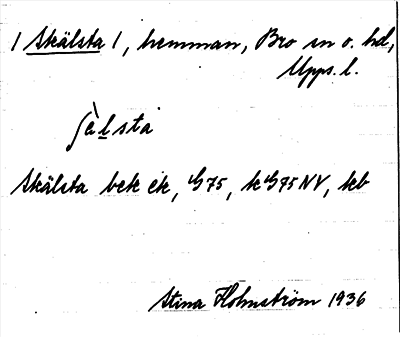 / Skälsta /, hemman, Bro sn o. hd,
Upps. l.
ʃɛ̀lsta
Skälsta bek ek, G75, k G75 NV, kb
Stina Holmström 1936